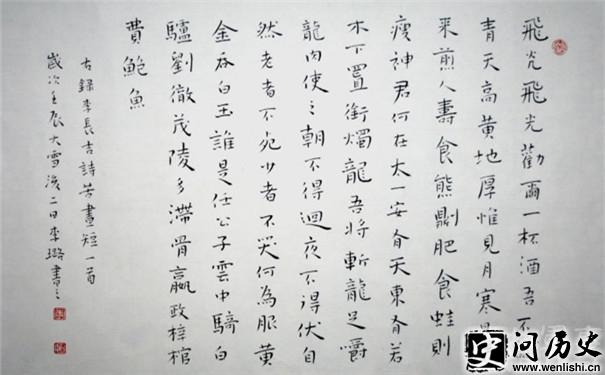 飛光飛光勸爾一杯酒吾不
青天高黄地厚惟見月寒
来煎人壽食熊則肥食蛙則
瘦神君何在太一安有天東有若
木下置銜燭龍吾將斬龍足嚼
龍肉使之朝不得迴夜不得伏自
然老者不死少者不哭何為服黄
金吞白玉誰是任公子雲中騎白
驢劉徹茂陵多滯骨嬴政梓棺
費鮑魚
右錄李長吉詩苦晝短一首
歲次壬辰大雪後二日李璐書之
问历史
www.wenlishi.cn